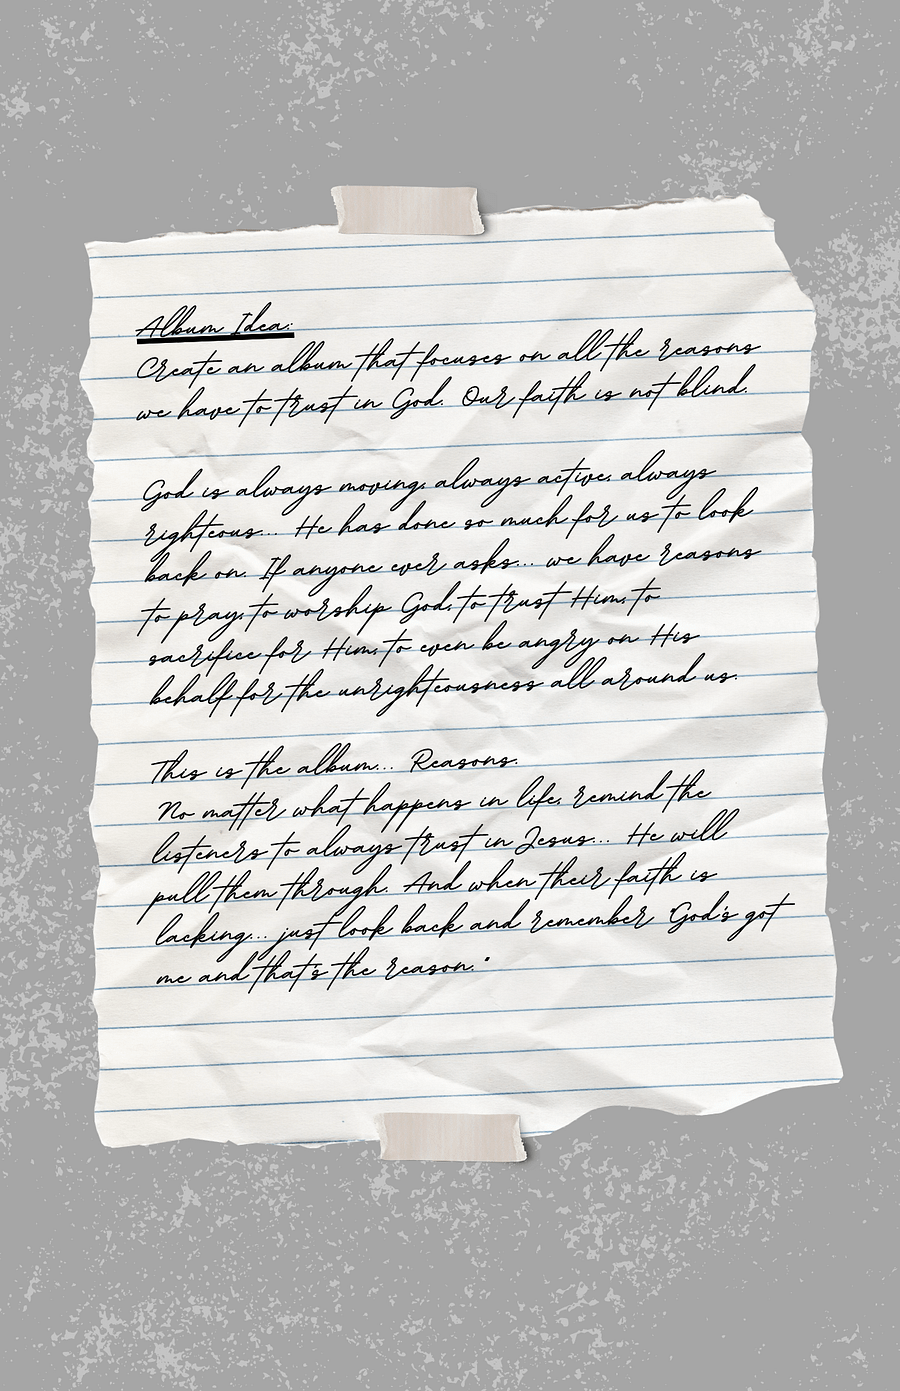 Album Idea:
Create an album that focuses on all the reasons
we have to trust in God. Our faith is not blind.
God is always moving, always active, always
righteous... He has done so much for us to look
back on. If anyone ever asks... we have reasons
to pray, to worship God, to trust Him, to
sacrifice for Him, to even be angry on His
behalf for the unrighteousness all around us.
This is the album... Reasons.
No matter what happens in life, remind the
listeners to always trust in Jesus... He will
pull them through. And when their faith is
lacking... just look back and remember "God's got
me and that's the reason."